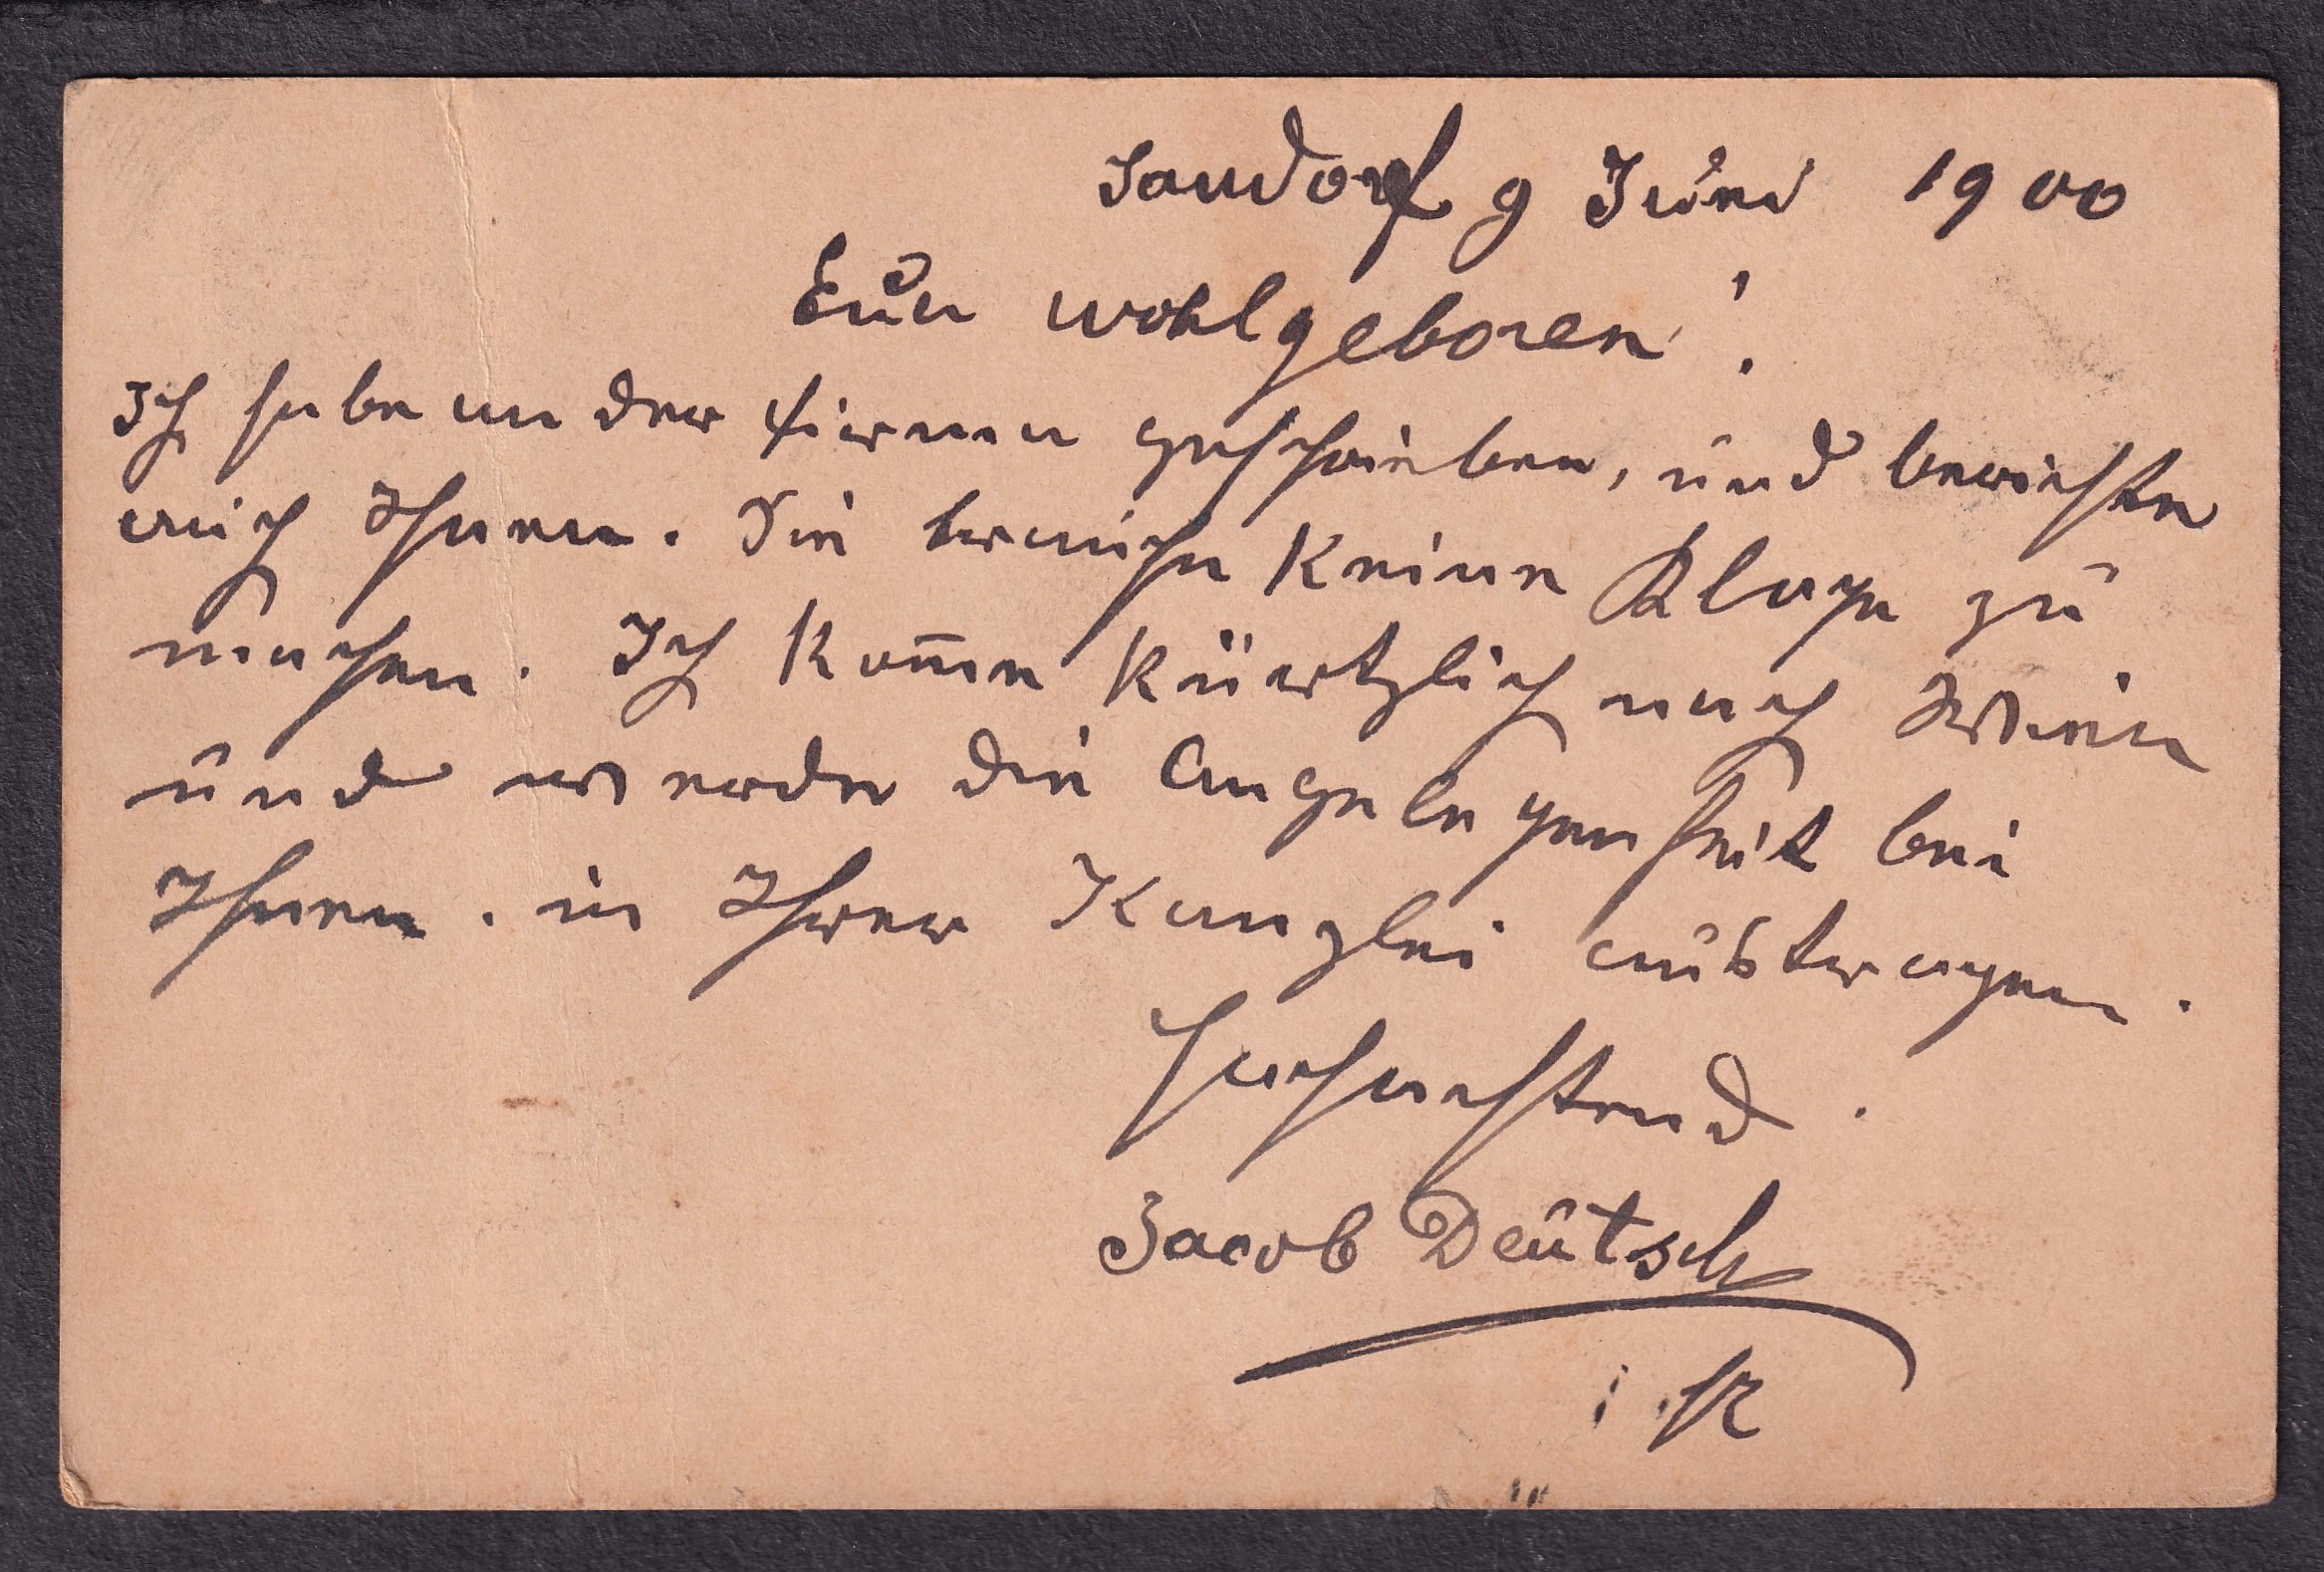 Sandorf 9 Juni 1900
Euer wohlgeboren!
Ich habe an der Firma geschrieben, und berichte
auch Ihnen. Sie brauche keine Klage zu
machen. Ich kom̅e kürtzlich nach Wien
und werde die Angelegenheit bei
Ihnen. in Ihrer Kanzlei austragen.
Hochachtend.
Jacob Deutsch